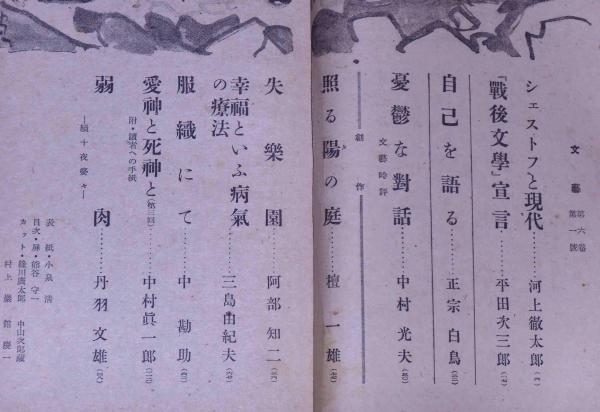 文藝 第六巻 第一號
シェストフと現代………河上徹太郎
「戰後文學」宣言………平田次三郎
自己を語る………正宗白鳥
憂鬱な對話………中村光夫
文藝時評
創作
照る陽の庭………檀一雄
失樂園………阿部知二
幸福といふ病氣の療法………三島由紀夫
服織にて………中勘助
愛神と死神と(第三回)………中村眞一郎
附・讀者への手紙
弱肉………丹羽文雄
―續十夜婆々―
表紙・小泉清
目次・扉・熊谷守一
カット・緑川廣太郎 中山次郎藏